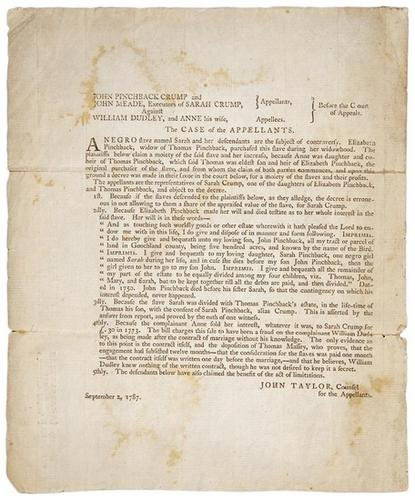 JOHN PINCHBACK CRUMP and
JOHN MEADE, Executors of SARAH CRUMP, } Appellants,
Against } Before the Court of Appeals.
WILLIAM DUDLEY, and ANNE his wife, Appellees.
The CASE of the APPELLANTS.
A NEGRO slave named Sarah and her descendants are the subject of controversy. Elizabeth
Pinchback, widow of Thomas Pinchback, purchased this slave during her widowhood. The
plaintiffs below claim a moiety of the slave and her increase, because Anne was daughter and co-
heir of Thomas Pinchback, which said Thomas was eldest son and heir of Elizabeth Pinchback, the
original purchaser of the slave, and from whom the claim of both parties commences, and upon this
ground a decree was made in their favor in the court below, for a moiety of the slaves and their profits.
The appellants are the representatives of Sarah Crump, one of the daughters of Elizabeth Pinchback,
and Thomas Pinchback, and object to the decree.
1st. Because if the slaves descended to the plaintiffs below, as they alledge, the decree is errone-
ous in not allowing to them a share of the appraised value of the slave, for Sarah Crump.
2dly. Because Elizabeth Pinchback made her will and died testate as to her whole interest in the
said slave. Her will is in these words—
" And as touching such worldly goods or other estate wherewith it hath pleased the Lord to en-
" dow me with in this life, I do give and dispose of in manner and form following. IMPRIMIS.
" I do hereby give and bequeath unto my loving son, John Pinchback, all my tract or parcel of
" land in Goochland county, being five hundred acres, and known by the name of the Bird.
" IMPRIMIS. I give and bequeath to my loving daughter, Sarah Pinchback, one negro girl
" named Sarah during her life, and in case she dies before my son John Pinchback, then the
" girl given to her to go to my son John. IMPRIMIS. I give and bequeath all the remainder of
" my part of the estate to be equally divided among my four children, viz. Thomas, John,
" Mary, and Sarah, but to be kept together till all the debts are paid, and then divided." Dat-
ed, in 1752. John Pinchback died before his sister Sarah, so that the contingency on which his
interest depended, never happened.
3dly. Because the slave Sarah was divided with Thomas Pinchback's estate, in the life-time of
Thomas his son, with the consent of Sarah Pinchback, alias Crump. This is asserted by the
answer from report, and proved by the oath of one witness.
4thly. Because the complainant Anne sold her interest, whatever it was, to Sarah Crump for
£. 30 in 1773. The bill charges this sale to have been a fraud on the complainant William Dud-
ley, as being made after the contract of marriage without his knowledge. The only evidence as
to this point is the contract itself, and the deposition of Thomas Massey, who proves, that the
engagement had subsisted twelve months—that the consideration for the slaves was paid one month
—that the contract itself was written one day before the marriage,—and that he believes, William
Dudley knew nothing of the written contract, though he was not desired to keep it a secret.
5thly. The defendants below have also claimed the benefit of the act of limitations.
JOHN TAYLOR, Counsel
for the Appellants.
September 2, 1787.